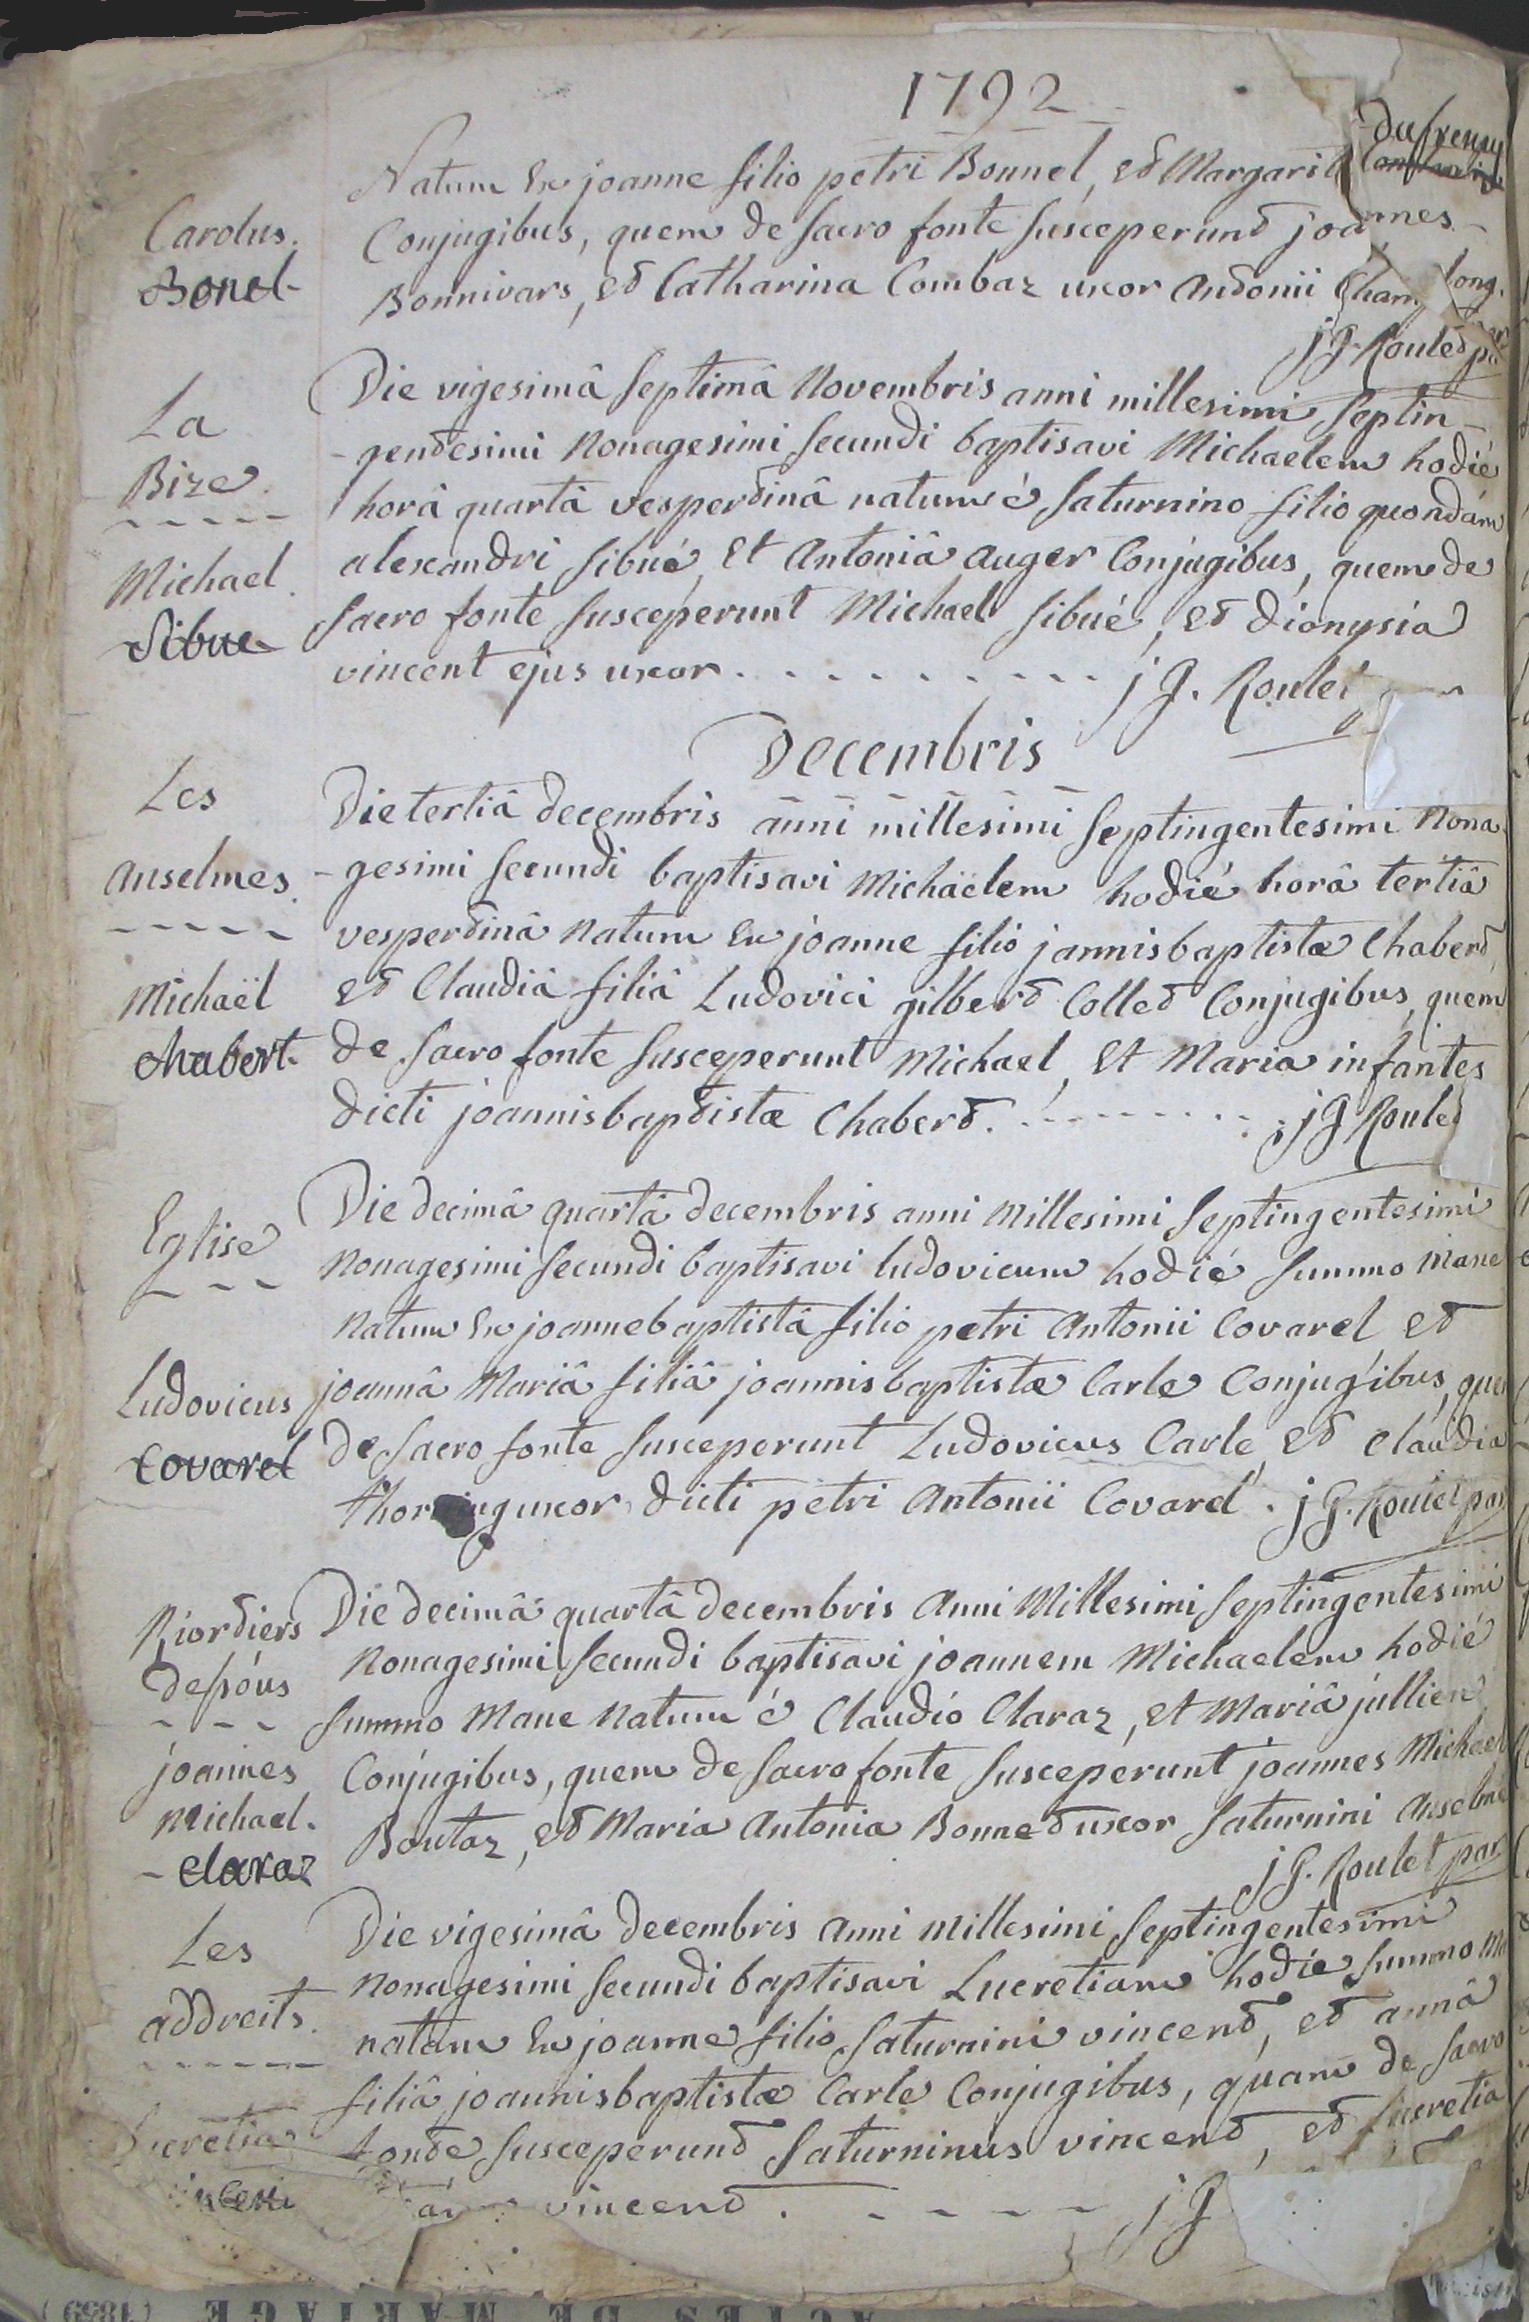 1792
Carolus.
Bonel
Natum ex joanne filio petri Bonnel, et Margarit dufreney
Conjugibus, quem de sacro fonte susceperunt joannes
Bonnivars, et Catharina Combaz uxor antonii Cham long.
j G. Roulet
La
Bize
Michael
Sibue
Die vigesimâ septimâ Novembris anni millesimi septin-
-gentesimi Nonagesimi secundi baptisavi Michaelem hodié
horâ quartâ vespertinâ natum é saturnino filio quondám
alexandri sibué, et Antoniâ auger Conjugibus, quem de
sacro fonte susceperunt Michael sibué, et dionysia
vincent ejus uxor. j G. Roulet
Decembris
Les
anselmes.
Michaël
chabert
Die tertiâ decembris anni millesimi septingentesimi Nona
-gesimi secundi baptisavi Michäelem hodié horâ tertiâ
vespertinâ Natum ex joanne filio jannisbaptistæ Chabert,
et Claudiâ filiâ Ludovici gilbert Collet Conjugibus, quem
de sacro fonte susceperunt Michael, et Maria infantes
dicti joannisbaptistæ Chabert. j G Roulet
Eglise
Ludovicus
Covarel
Die decimâ quartâ decembris anni Millesimi septingentesimi
Nonagesimi secundi baptisavi ludovicum hodié summo mane
Natum ex joannebaptistâ filio petri Antonii Covarel et
joannâ Mariâ filiâ joannisbaptistæ Carle Conjugibus, quem
de sacro fonte susceperunt Ludovicus Carle, et claudia
uxor dicti petri Antonii Covarel. j G. Roulet par
Riordiers
dessóus
joannes
Michael.
- claraz
Die decimâ quartâ decembris Anni Millesimi septingentesimi
Nonagesimi secundi baptisavi joannem Michaelem hodié
summo Mane Natum é Claudio Claraz, et Mariâ jullien
Conjugibus, quem de sacro fonte susceperunt joannes Michael
Boutaz, et Maria Antonia Bonnet uxor saturnini Anselme
j G. Roulet par
Les
addreits.
Lucretia
Die vigesimâ decembris anni Millesimi septingentesimi
Nonagesimi secundi baptisavi Lucretiam hodie summo
natam ex joanne filio saturnini vincent, et annâ
filiâ joannisbaptistæ Carle Conjugibus, quam de sacro
fonte susceperunt saturninus vincent, et Lucretia
vincent. j G
ACTES DE MARIAGE (1859)